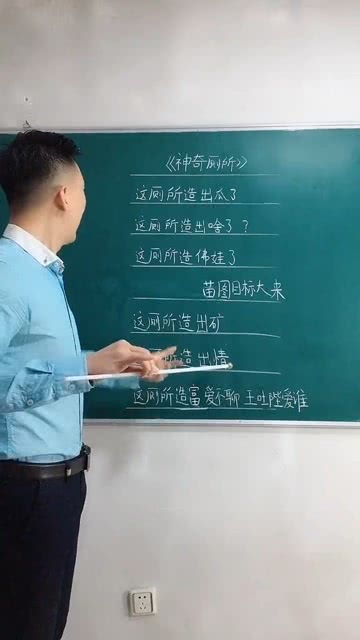 《神奇厕所》
这厕所造出瓜了
这厕所造出啥了？
这厕所造佛娃了
苗图目标大来
这厕所造出矿
所造出情
这厕所造富爱不聊王吐陛爱谁